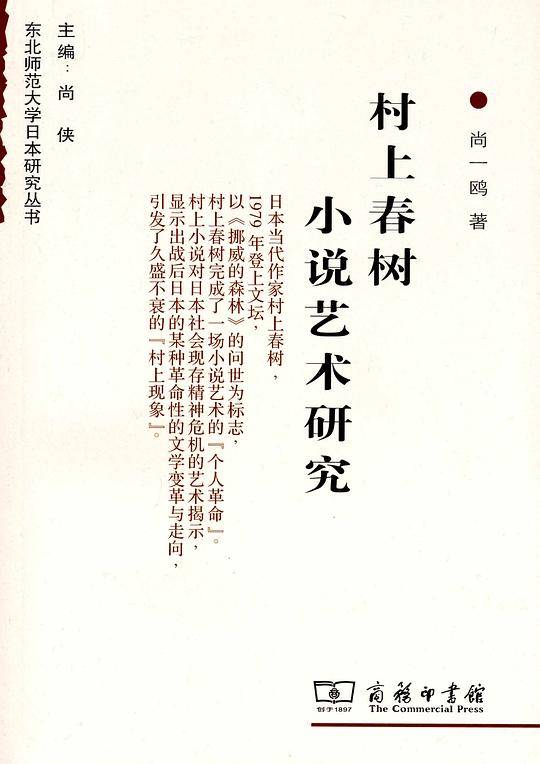 尚一鸥 著
村上春树
小说艺术研究
日本当代作家村上春树，
1979 年登上文坛，
以《挪威的森林》的问世为标志，
村上春树完成了一场小说艺术的『个人革命』。
村上小说对日本社会现存精神危机的艺术揭示，
显示出战后日本的某种革命性的文学变革与走向，
引发了久盛不衰的『村上现象』。
主编：尚 侠
东北师范大学日本研究丛书
创于1897
商務印書館
The Commercial Press